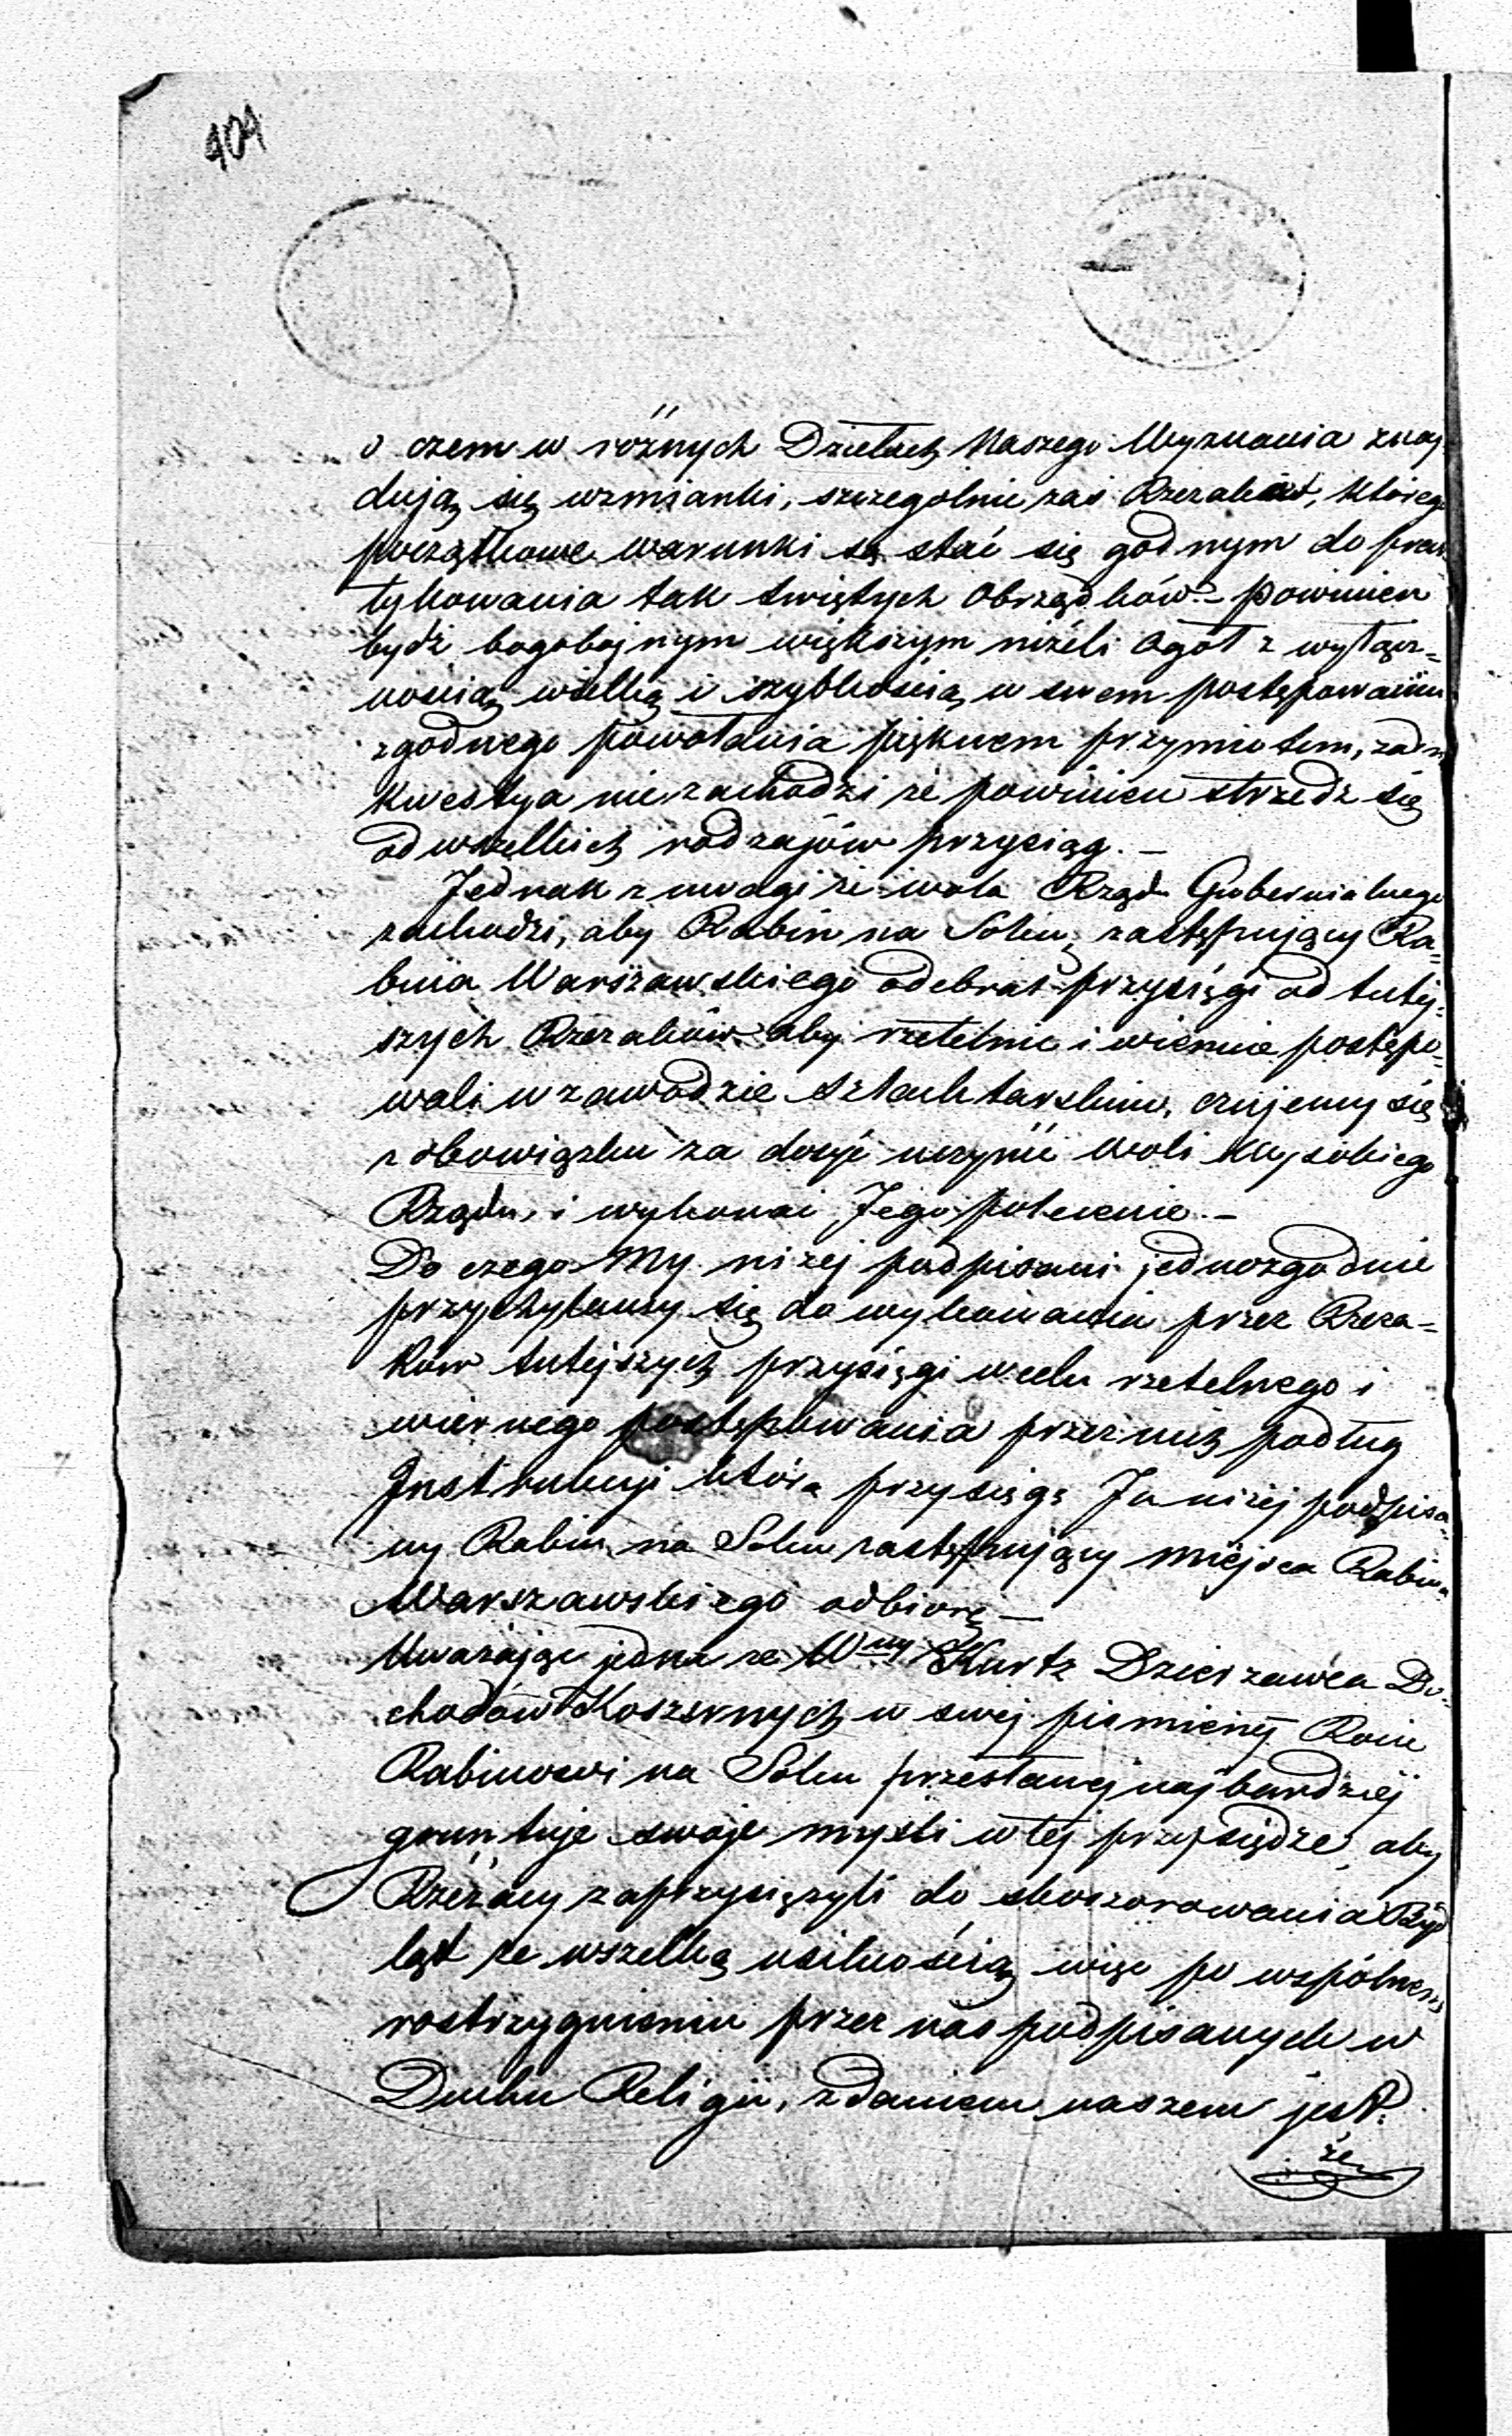 404
o czem w różnych Dziełach Naszego Wyznania znaj-
dują się wzmianki, szczególnie zaś Rzezaków, którego
początkowe warunki są stać się godnym do prak-
tykowania tak świętych Obrządków – powinien
bydź bogobojnym większym niżeli Ogół z wyłącz-
nością wielką i szybkością w swem postępowaniu
zgodnego powołania pięknem przymiotem, żadna
kwestya nie zachodzi że powinien strzedz się
od wszelkich rodzajów przysiąg. –
Jednak z uwagi że wola Rządu Gubernialnego
zachodzi, aby Rabin na Solcu, zastępujący Ra-
bina Warszawskiego odebrał przysięgi od tutej-
szych Rzezaków aby rzetelnie i wiernie postępo-
wali w zawodzie szlachtarskim, czujemy się
z obowiązku za dosyć uczynić woli Wysokiego
Rządu, i wykonać Jego polecenie. –
Do czego My niżej podpisani jednozgodnie
przychylamy się do wykonania przez Rzeza-
ków tutejszych przysięgi w celu rzetelnego i
wiernego postępowania przez nich podług
Instrukcyi którą przysięgę Ja niżej podpisa-
ny Rabin na Solcu zastępujący miejsca Rabina
Warszawskiego odbiorę –
Uważając jedna że Wny Kurtz Dzierzawca Do-
chodów Koszernych w swej piśmienej
Rabinowi na Solcu przesłanej najbardziej
gruntuje swoje myśli w tej przysiędze, aby
Rzezacy zaprzysięzyli do skoszorowania Byd
ląt ze wszelką usilnością więc po wspólnem
rostrzygnieniu przez nas podpisanych w
Duchu Religii, zdaniem naszem jest:
że